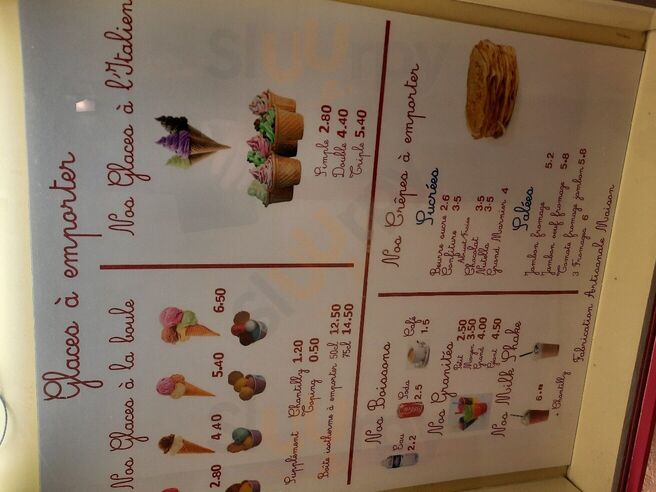 Glaces à emporter
Nos Glaces à la boule
2.80 4.40 5.40 6.50
Supplément Chantilly 1.20
Topping 0.50
Boîte isotherme à emporter 50cl 12.50
75cl 14.50
Nos Glaces à l'Italien
Simple 2.80
Double 4.40
Triple 5.40
Nos Boissons
Eau 2.2
Soda 2.5
Café 1.5
Nos Granités
Petit 2.50
Moyen 3.50
Grand 4.00
Géant 4.50
Nos Milk Shake
+ Chantilly
Nos Crêpes à emporter
Sucrées
Beurre sucre 2.6
Confiture 3.5
Chocolat 3.5
Nutella 3.5
Grand Marnier 4
Salées
Jambon fromage 5.2
Jambon oeuf fromage 5.8
Tomate fromage jambon 5.8
3 Fromages 6
Fabrication Artisanale Maison